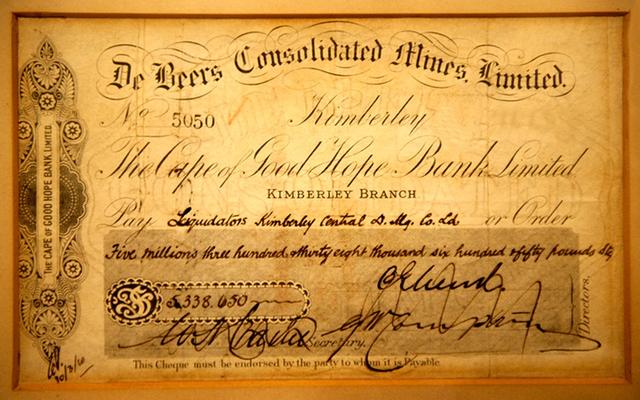 De Beers Consolidated Mines, Limited.
No 5050 Kimberley
The Cape of Good Hope Bank Limited
KIMBERLEY BRANCH
Pay Liquidators Kimberley Central D. Mg. Co. Ld or Order
Five millions three hundred & thirty eight thousand six hundred & fifty pounds Stg
£5,338,650
Directors.
Secretary.
This Cheque must be endorsed by the party to whom it is Payable
THE CAPE OF GOOD HOPE BANK LIMITED